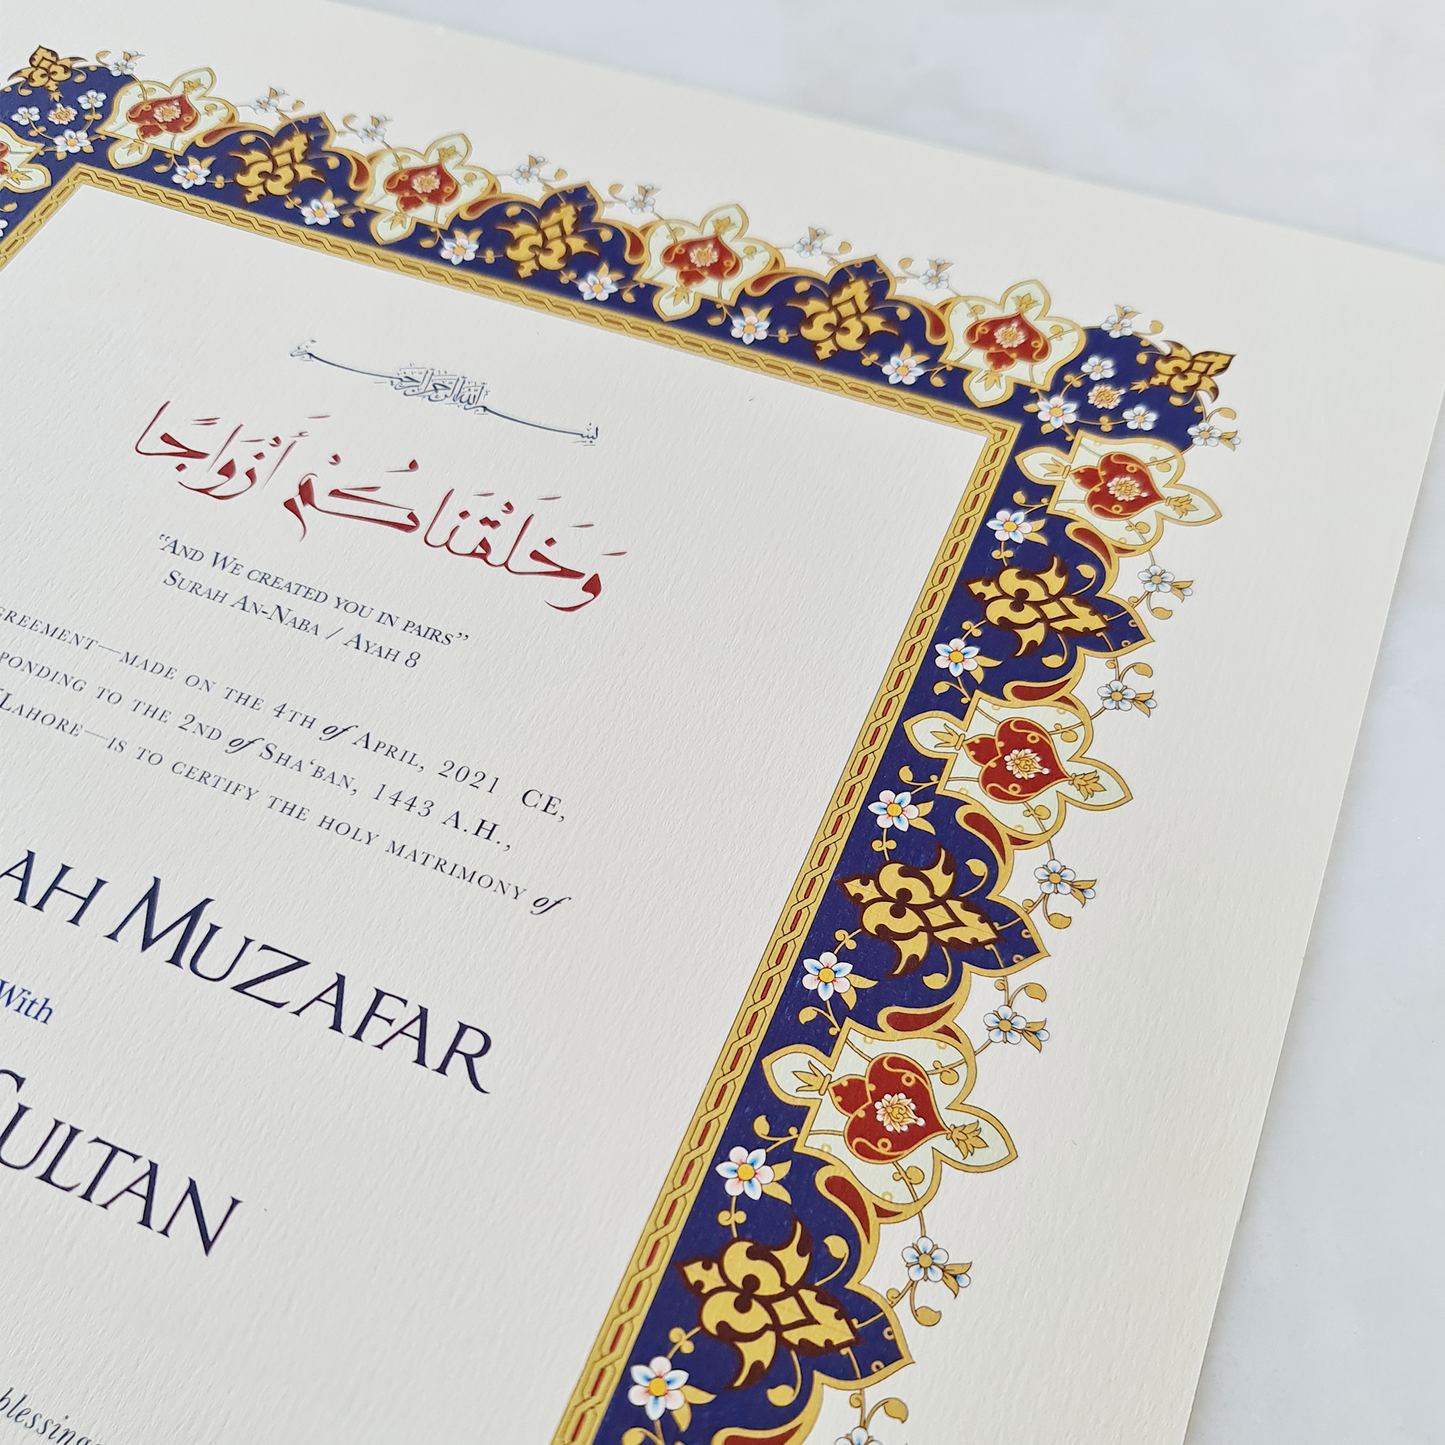 بسم الله الرحمن الرحيم
وَخَلَقْنَاكُمْ أَزْوَاجًا
“And We created you in pairs”
Surah An-Naba / Ayah 8
greement—made on the 4th of April, 2021 CE,
ponding to the 2nd of Sha‘ban, 1443 A.H.,
Lahore—is to certify the holy matrimony of
ah Muzafar
With
Sultan
blessing